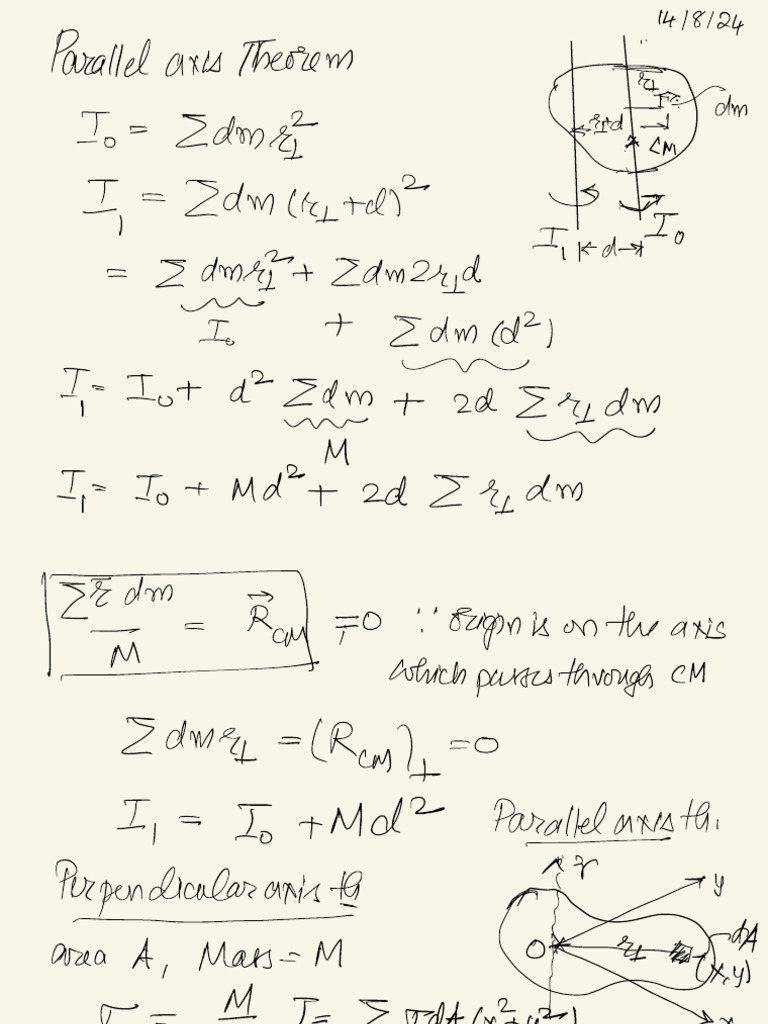 14/8/24
Parallel axis Theorem
I₀ = Σdm r⊥²
I₁ = Σdm (r⊥+d)²
= Σ dm r⊥² + Σdm 2r⊥d
I₀ + Σ dm (d²)
I₁ = I₀ + d² Σdm + 2d Σ r⊥ dm
M
I₁ = I₀ + Md² + 2d Σ r⊥ dm
r⊥
dm
r⊥+d
CM
I₁ ←d→ I₀
Σ r̄ dm / M = R⃗CM = 0 ∵ origin is on the axis
which passes through CM
Σ dm r⊥ = (RCM)⊥ = 0
I₁ = I₀ + Md² Parallel axis th.
Perpendicular axis th
area A, Mass = M
y
O r⊥ dA
(x,y)
x
σ = M I = Σ σdA (x²+y²)